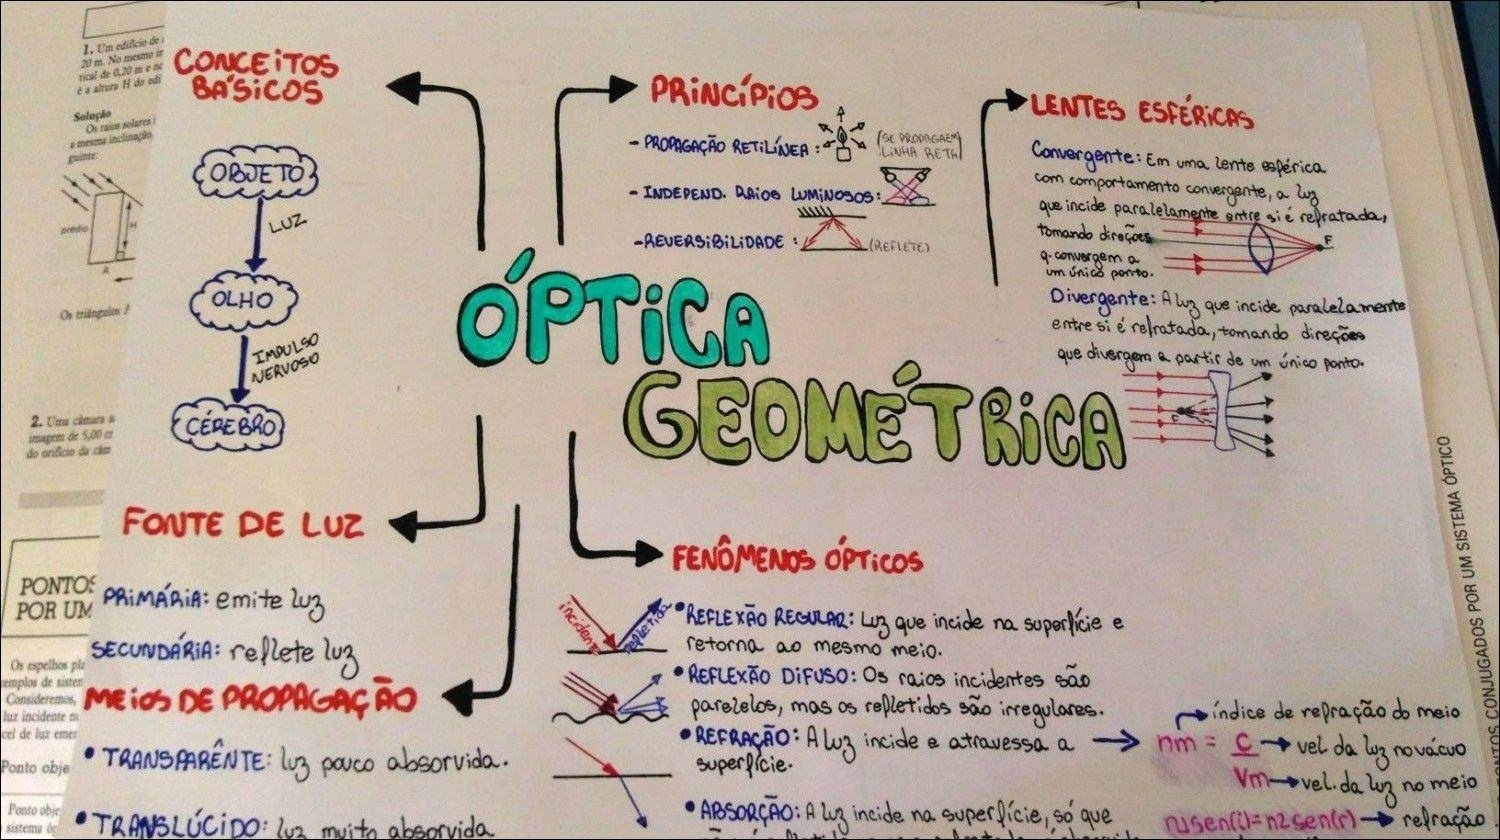 CONCEITOS
BÁSICOS
OBJETO
LUZ
OLHO
IMPULSO
NERVOSO
CÉREBRO
PRINCÍPIOS
- PROPAGAÇÃO RETILÍNEA :
(SE PROPAGA EM
LINHA RETA)
- INDEPEND. RAIOS LUMINOSOS:
-REVERSIBILIDADE :
(REFLETE)
LENTES ESFÉRICAS
Convergente: Em uma lente esférica
com comportamento convergente, a luz
que incide paralelamente entre si é refratada,
tomando direções
q. convergem a
um único ponto.
F
Divergente: A luz que incide paralelamente
entre si é refratada, tomando direções
que divergem a partir de um único ponto.
ÓPTICA
GEOMÉTRICA
FONTE DE LUZ
PRIMÁRIA: emite luz
SECUNDÁRIA: reflete luz
MEIOS DE PROPAGAÇÃO
• TRANSPARÊNTE: luz pouco absorvida.
• TRANSLÚCIDO: luz muito absorvida
FENÔMENOS ÓPTICOS
incidente
refletida
• REFLEXÃO REGULAR: Luz que incide na superfície e
retorna ao mesmo meio.
• REFLEXÃO DIFUSO: Os raios incidentes são
parelelos, mas os refletidos são irregulares.
• REFRAÇÃO: A luz incide e atravessa a
superfície.
índice de refração do meio
nm = C → vel. da luz no vácuo
Vm → vel. da luz no meio
n1sen(i)=n2sen(r) → refração
• ABSORÇÃO: A luz incide na superfície, só que
1. Um edifício de
20 m. No mesmo
tical de 0,20 m e
é a altura H do
Solução
Os raios solares
a mesma inclinação
guinte:
prédio
H
A
Os triângulos
2. Uma câmara
imagem de 5,00
do orifício da
PONTOS
POR UM
Os espelhos
Consideremos,
luz incidente
cel de luz
Ponto
Ponto
sistema
PONTOS CONJUGADOS POR UM SISTEMA ÓPTICO